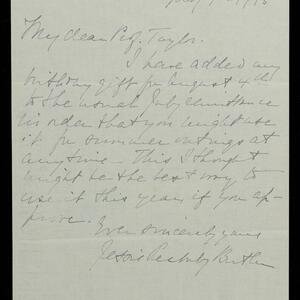 My dear Prof. Taylor.
I have added my
birthday gift for August 4th
to the usual July remittance
in order that you might use
it for summer outings at
any time - This I thought
might be the best way to
use it this year if you ap-
prove.
Ever sincerely yours
Jessie Peabody Butler